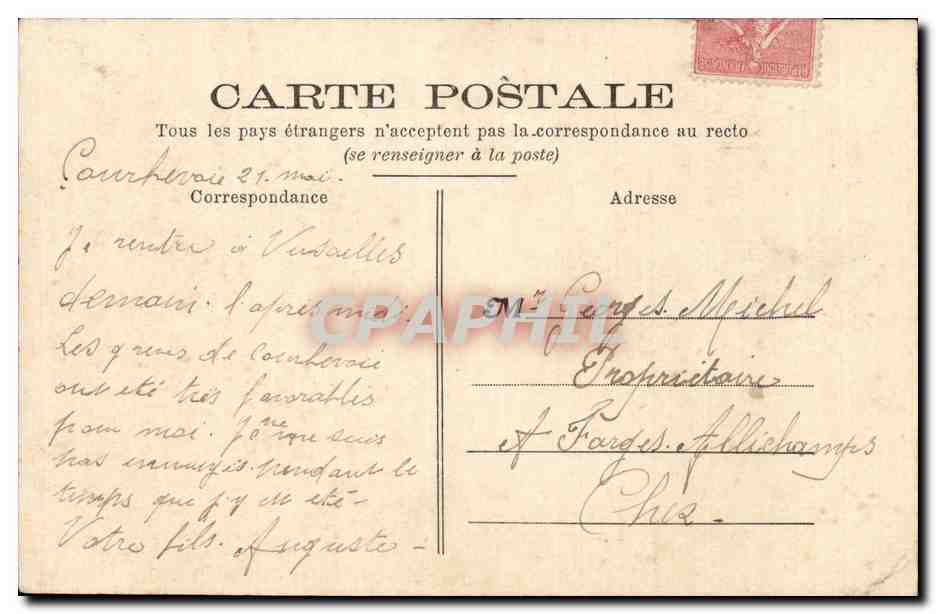 CARTE POSTALE
Tous les pays étrangers n'acceptent pas la correspondance au recto
(se renseigner à la poste)
Courbevoie 21. mai.
Correspondance
Je rentre à Versailles
demain. l'après midi.
Les greves de Courbevoie
ont été très favorables
pour moi. Je ne me suis
pas ennuyé pendant le
temps que j'y ai été -
Votre fils. Auguste -
Adresse
Mr Georges. Michel
Propriétaire
A Farges. Allichamps
Cher -
CPAPHIL